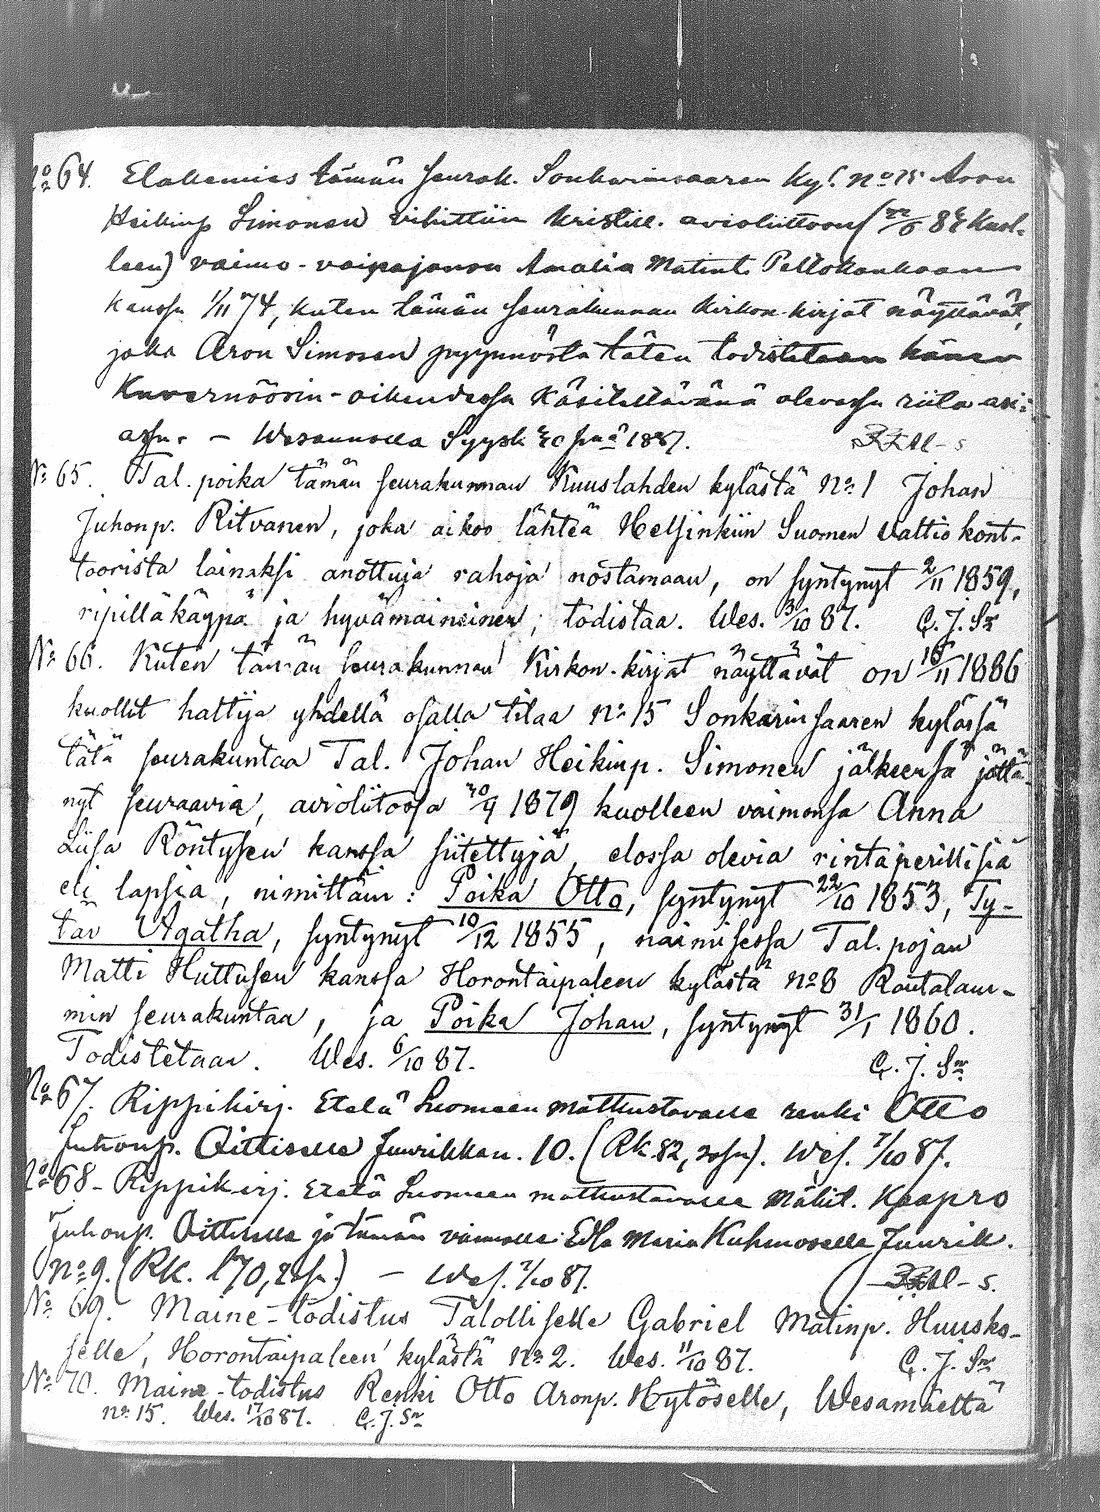 No 64. Elakemies tämän seurak. Sonkarinsaaren kyl. no 15 Aron
Heikinp Simonen vihittiin kristill. avioliittoon (22/5 8 kuol-
leen) vaimo-vainajansa Amalia Matint. Peltokankaan
kanssa 1/11 74, kuten tämän seurakunnan kirkon-kirjat näyttävät,
joka Aron Simosen pyynnöstä täten todistetaan hänen
Kuvernöörin-oikeudessa käsiteltävänä olevassa riita-asi-
assa. – Wesannolla Syysk 30 pnä 1887.
No 65. Tal. poika tämän seurakunnan Kuuslahden kylästä no 1 Johan
Juhonp. Ritvanen, joka aikoo lähteä Helsinkiin Suomen Valtiokont-
toorista lainaksi anottuja rahoja nostamaan, on syntynyt 2/11 1859,
ripilläkäypä ja hyvämaineinen; todistaa. Wes. 3/10 87. C. J. Sn
No 66. Kuten tämän seurakunnan Kirkon-kirjat näyttävät on 16/11 1886
kuollut haltija yhdellä osalla tilaa no 15 Sonkarinsaaren kylässä
tätä seurakuntaa Tal. Johan Heikinp. Simonen jälkeensä jättä-
nyt seuraavia, avioliitossa 30/9 1879 kuolleen vaimonsa Anna
Liisa Röntysen kanssa siitettyjä, elossa olevia rintaperillisiä
eli lapsia, nimittäin: Poika Otto, syntynyt 22/10 1853, Ty-
tär Agatha, syntynyt 10/12 1855, naimisessa Tal. pojan
Matti Huttusen kanssa Horontaipaleen kylästä no 8 Rautalam-
min seurakuntaa, ja Poika Johan, syntynyt 31/1 1860.
Todistetaan. Wes. 6/10 87. C. J. Sn
No 67. Rippikirj. Etelä Suomeen matkustavalle renki Otto
Juhonp. Oittiselle Juurikkan. 10. (Rk. 82, ). Wes. 7/10 87.
No 68 – Rippikirj. Etelä Suomeen matkustavalle Mäkit. Kaapro
Juhonp. Oittiselle ja tämän vaimolle Edla Maria Kuhmoselle Juurik.
no 9. (RK. 170, ) – Wes. 7/10 87.
No 69. Maine-todistus Talolliselle Gabriel Matinp. Huusko-
selle, Horontaipaleen kylästä no 2. Wes. 11/10 87. C. J. Sn
No 70. Maine-todistus Renki Otto Aronp. Hytöselle, Wesamäeltä
no 15. Wes. 17/10 87. C. J. Sn